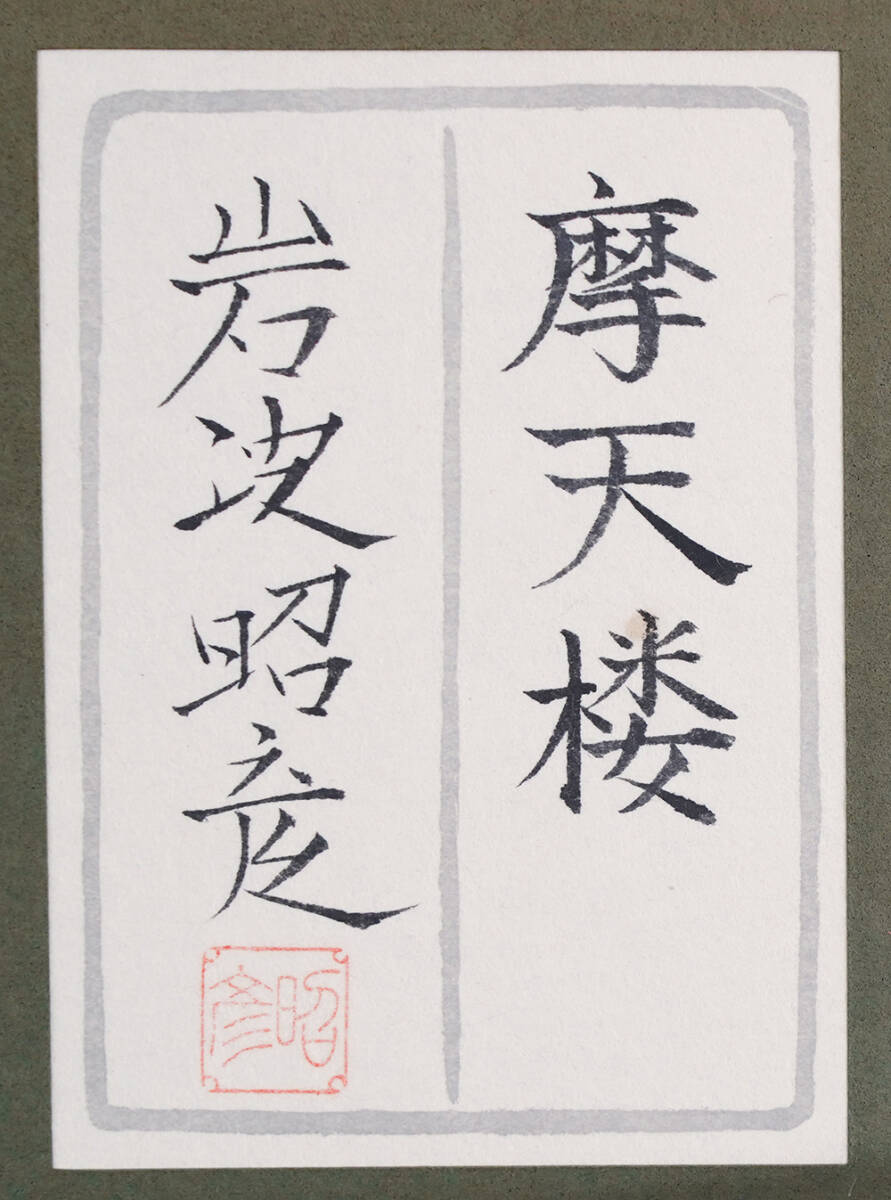 摩天楼
岩波昭彦
昭彦